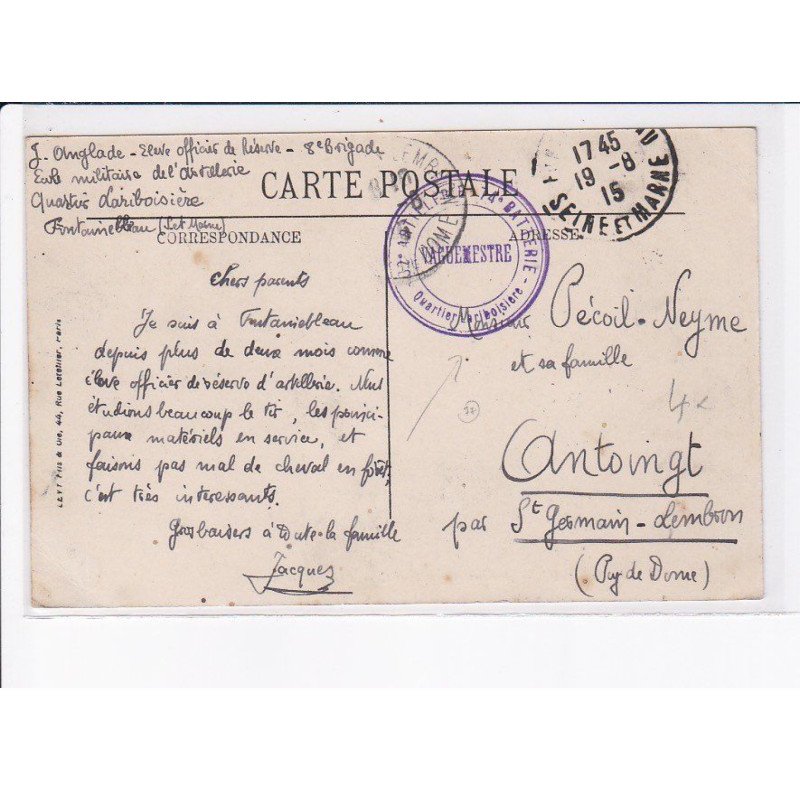 J. Anglade - Eleve officier de Réserve - 8e Brigade
Ecole militaire de l'artillerie
Quartier Lariboisière
Fontainebleau (Set Marne)
CARTE POSTALE
CORRESPONDANCE
ADRESSE
17 45
19 - 8
15
SEINE ET MARNE
LEMBRON
DOME
4e BATTERIE
VAGUEMESTRE
Quartier Lariboisière
Chers parents
Je suis à Fontainebleau
depuis plus de deux mois comme
élève officier de réserve d'artillerie. Nous
étudions beaucoup le tir, les princi-
paux matériels en service, et
faisons pas mal de cheval en forêt,
c'est très intéressants.
Gros baisers à toute la famille
Jacques
Monsieur Pécoil-Neyme
et sa famille
Antoingt
par St Germain-Lembron
(Puy de Dome)
37
4x
LEVY Fils & Cie, 44, Rue Letellier, Paris